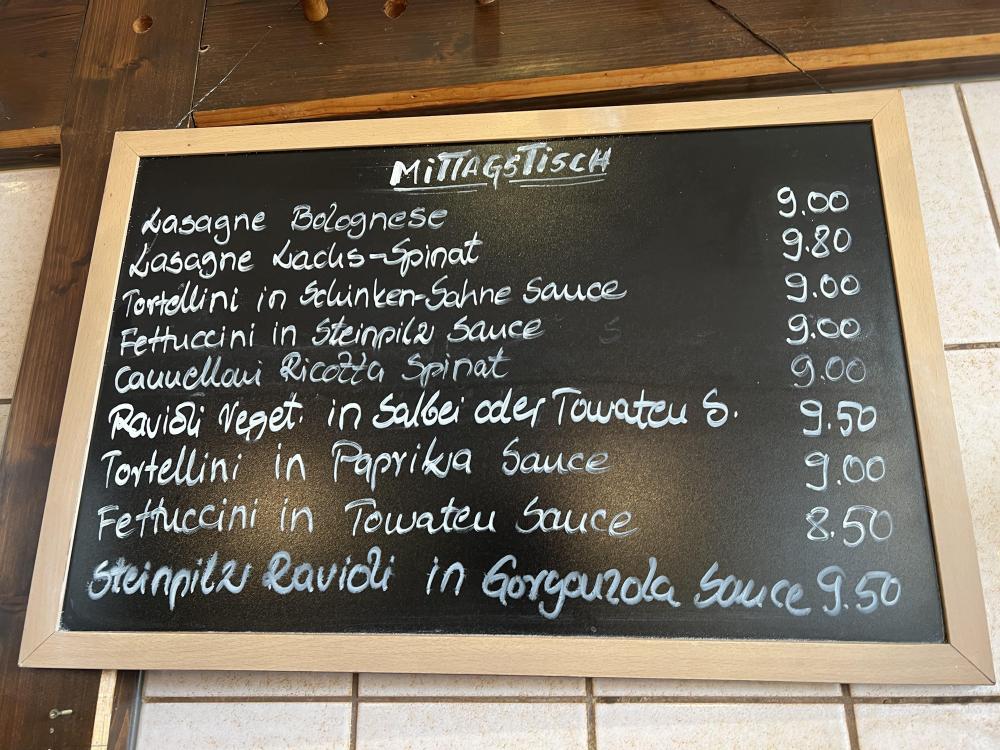 MITTAGSTISCH
Lasagne Bolognese 9.00
Lasagne Lachs-Spinat 9.80
Tortellini in Schinken-Sahne Sauce 9.00
Fettuccini in Steinpilz Sauce 9.00
Cannelloni Ricotta Spinat 9.00
Ravioli Veget. in Salbei oder Tomaten S. 9.50
Tortellini in Paprika Sauce 9.00
Fettuccini in Tomaten Sauce 8.50
Steinpilz Ravioli in Gorganzola Sauce 9.50